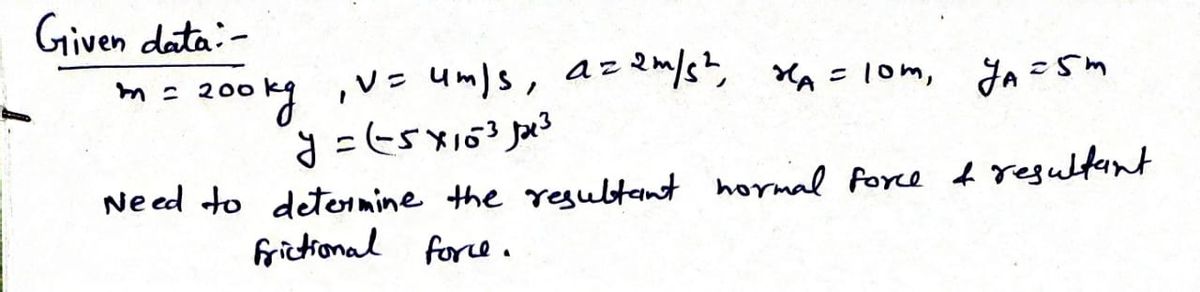 Given data:-
m = 200 kg , v = 4m/s, a = 2m/s², xA = 10m, yA = 5m
y = (-5 × 10⁻³)x³
Need to determine the resultant normal force & resultant
frictional force.